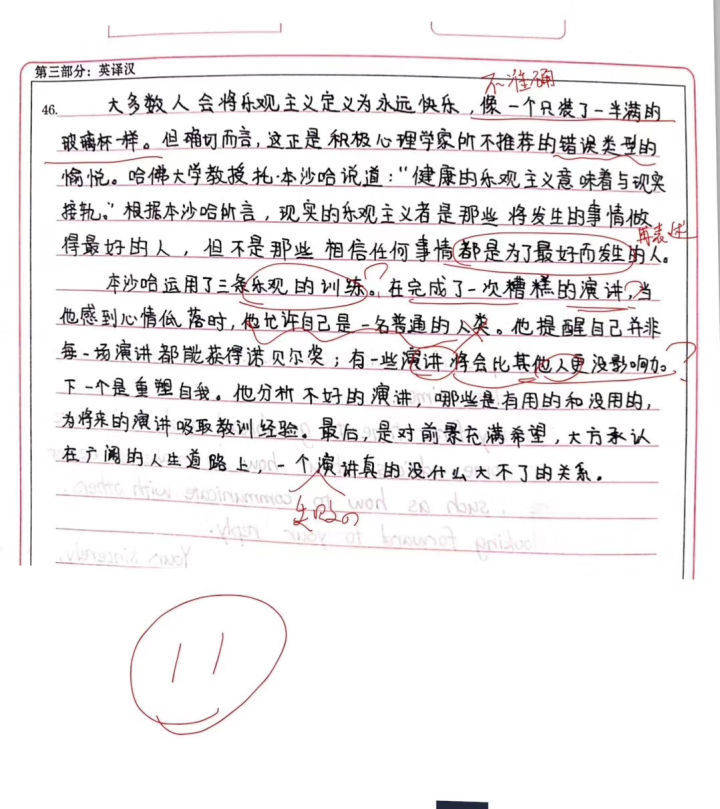 第三部分：英译汉
不准确
46. 大多数人会将乐观主义定义为永远快乐，像一个只装了一半满的
玻璃杯一样。但确切而言，这正是积极心理学家所不推荐的错误类型的
愉悦。哈佛大学教授托·本沙哈说道："健康的乐观主义意味着与现实
接轨。"根据本沙哈所言，现实的乐观主义者是那些将发生的事情做
得最好的人，但不是那些相信任何事情都是为了最好而发生的人。
再表述
本沙哈运用了三条乐观的训练。在完成了一次糟糕的演讲，当
他感到心情低落时，他允许自己是一名普通的人类。他提醒自己并非
每一场演讲都能获得诺贝尔奖；有一些演讲将会比其他人更没影响力。
下一个是重塑自我。他分析不好的演讲，哪些是有用的和没用的，
为将来的演讲吸取教训经验。最后，是对前景充满希望，大方承认
在广阔的人生道路上，一个演讲真的没什么大不了的关系。
失败的
such as how to communicate with other
looking forward to your reply.
Your sincerely,